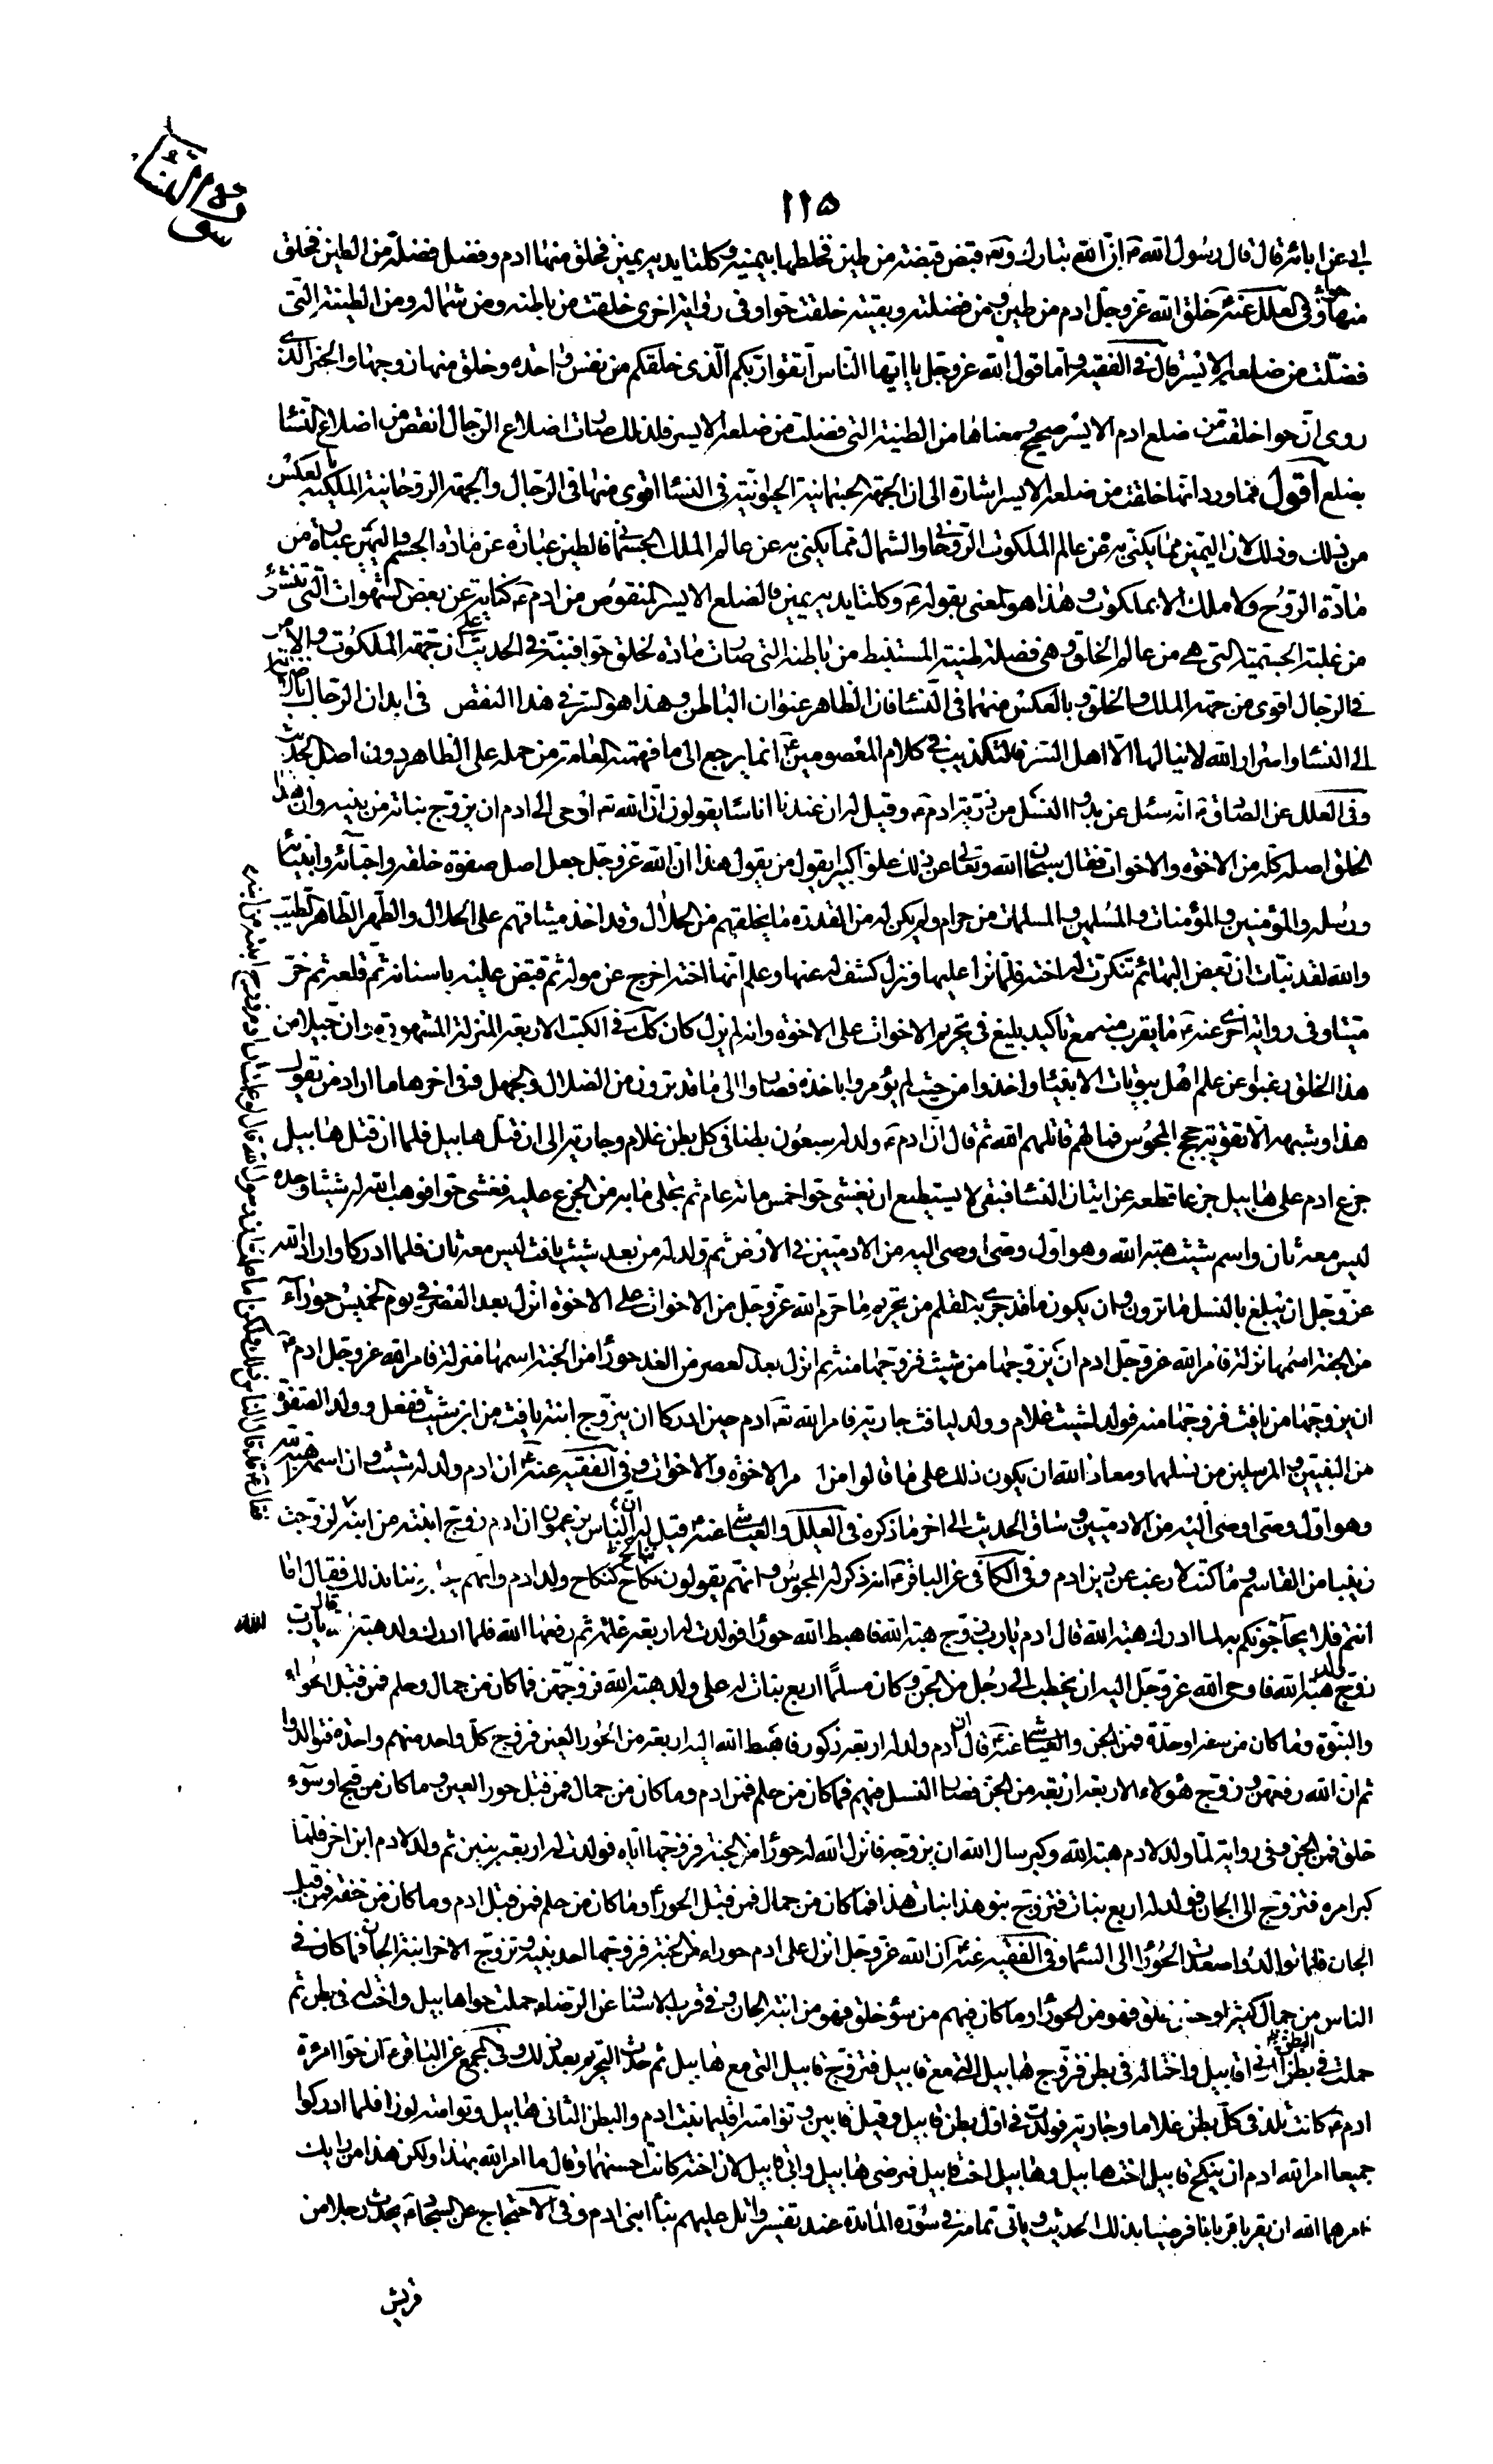 سورة النساء
١١٥
ابى عن ابائه قال قال رسول الله ص ان الله تبارك وتع قبض قبضة من طين فخلطها بيمينه وكلتا يديه يمين فخلق منها ادم وفضل فضلة من الطين فخلق
منها حواء وفى العلل عنه ع خلق الله عز وجل ادم من طين ومن فضلته وبقيته خلقت حوا وفى رواية اخرى خلقت من باطنه ومن شماله ومن الطينة التى
فضلت من ضلعه الايسر قال فى الفقيه واما قول الله عز وجل يا ايها الناس اتقوا ربكم الذى خلقكم من نفس واحدة وخلق منها زوجها والخبر الذى
روى ان حوا خلقت من ضلع ادم الايسر صحيح ومعناها من الطينة التى فضلت من ضلعه الايسر فلذلك صارت اضلاع الرجال انقص من اضلاع النساء
بضلع اقول فما ورد انها خلقت من ضلعه الايسر اشارة الى ان الجهة الجسمانية الحيوانية فى النساء اقوى منها فى الرجال والجهة الروحانية الملكية بالعكس
من ذلك وذلك لان اليمين مما يكنى به عن عالم الملكوت الروحانى والشمال مما يكنى به عن عالم الملك الجسمانى فالطين عبارة عن مادة الجسم واليمين عبارة من
مادة الروح ولا ملك الا بملكوت وهذا هو المعنى بقوله ع وكلتا يديه يمين فالضلع الايسر المنقوص من ادم ع كناية عن بعض الشهوات التى تنشؤ
من غلبة الجسمية التى هى من عالم الخلق وهى فضلة طينته المستنبط من باطنه التى صارت مادة لخلق حوا فنبه فى الحديث على ان جهة الملكوت والامر
فى الرجال اقوى من جهة الملك والخلق وبالعكس منهما فى النساء فان الظاهر عنوان الباطن وهذا هو السر فى هذا النقص فى ابدان الرجال بالاضافة
الى النساء واسرار الله لا ينالها الا اهل السر فالتكذيب فى كلام المعصومين ع انما يرجع الى ما فهمته العامة من حمله على الظاهر دون اصل الحديث
وفى العلل عن الصادق ع انه سئل عن بدو النسل من ذرية ادم ع وقيل له ان عندنا اناسا يقولون ان الله تع اوحى الى ادم ان يزوج بناته من بنيه وان هذا
الخلق اصله كله من الاخوة والاخوات فقال سبحان الله وتعالى عن ذلك علوا كبيرا يقول من يقول هذا ان الله عز وجل جعل اصل صفوة خلقه واحبائه وانبيائه
ورسله والمؤمنين والمؤمنات والمسلمين والمسلمات من حرام ولم يكن له من القدرة ما يخلقهم من الحلال وقد اخذ ميثاقهم على الحلال والطهر الطاهر الطيب
والله لقد نبئت ان بعض البهائم تنكرت له اخته فلما نزا عليها ونزل كشف له عنها وعلم انها اخته اخرج عن موله ثم قبض عليه باسنانه ثم قلعه ثم خر
ميتا وفى رواية اخرى عنه ع ما يقرب منه مع تاكيد بليغ فى تحريم الاخوات على الاخوة وانه لم يزل كان كك فى الكتب الاربعة المنزلة المشهورة وان جيلا من
هذا الخلق رغبوا عن علم اهل بيوتات الانبياء واخذوا من حيث لم يؤمروا باخذه فصاروا الى ما قد ترون من الضلال والجهل وفى اخرها ما اراد من يقول
هذا وشبهه الا تقوية حجج المجوس فما لهم قاتلهم الله ثم قال ان ادم ع ولد له سبعون بطنا فى كل بطن غلام وجارية الى ان قتل هابيل فلما ان قتل هابيل
جزع ادم على هابيل جزعا قطعه عن اتيان النساء فبقى لا يستطيع ان يغشى حوا خمسمائة عام ثم تجلى ما به من الجزع عليه فغشى حوا فوهب الله له شيثا وحده
ليس معه ثان واسم شيث هبة الله وهو اول وصى اوصى اليه من الادميين فى الارض ثم ولد له من بعد شيث يافث ليس معه ثان فلما ادركا واراد الله
عز وجل ان يبلغ بالنسل ما ترون وان يكون ما قد جرى به القلم من تحريم ما حرم الله عز وجل من الاخوات على الاخوة انزل بعد العصر فى يوم الخميس حوراء
من الجنة اسمها نزلة فامر الله عز وجل ادم ان يزوجها من شيث فزوجها منه ثم انزل بعد العصر من الغد حورا من الجنة اسمها منزلة فامر الله عز وجل ادم ع
ان يزوجها من يافث فزوجها منه فولد لشيث غلام وولد ليافث جارية فامر الله تع ادم حين ادركا ان يزوج ابنة يافث من ابن شيث ففعل وولد الصفوة
من النبيين والمرسلين من نسلهما ومعاذ الله ان يكون ذلك على ما قالوا من امر الاخوة والاخوات وفى الفقيه عنه ع ان ادم ولد له شيث وان اسمه هبة الله
وهو اول وصى اوصى اليه من الادميين وساق الحديث الى اخر ما ذكره فى العلل والعياشى عنه ع قيل له ان الناس يزعمون ان ادم زوج ابنته من ابنه لزوجت
زينبا من القاسم وما كنت لارغب عن دين ادم وفى الكافى عن الباقر ع انه ذكر له المجوس وانهم يقولون نكاح كنكاح ولد ادم وانهم يحاجوننا بذلك فقال اما
انتم فلا يحاجونكم به لما ادرك هبة الله قال ادم يا رب زوج هبة الله فاهبط الله حورا فولدت له اربعة غلمة ثم رفعها الله فلما ادرك ولد هبة الله قال يا رب
زوج ولد هبة الله فاوحى الله عز وجل اليه ان يخطب الى رجل من الجن وكان مسلما اربع بنات له على ولد هبة الله فزوجهن فما كان من جمال وحلم فمن قبل الحوراء
والنبوة وما كان من سفه او حدة فمن الجن والعياشى عنه ع قال ان ادم ولد له اربعة ذكور فاهبط الله اليه اربعة من الحور العين فزوج كل واحد منهم واحدة فتوالدوا
ثم ان الله رفعهن وزوج هؤلاء الاربعة اربعة من الجن فصار النسل فيهم فما كان من حلم فمن ادم وما كان من جمال فمن قبل حور العين وما كان من قبح او سوء
خلق فمن الجن وفى رواية لما ولد لادم هبة الله وكبر سال الله ان يزوجه فانزل الله له حورا من الجنة فزوجها اياه فولدت له اربعة بنين ثم ولد لادم ابن اخر فلما
كبر امره فتزوج الى الجان فولد له اربع بنات فتزوج بنو هذا بنات هذا فما كان من جمال فمن قبل الحورا وما كان من حلم فمن قبل ادم وما كان من خفة فمن قبل
الجان فلما توالدوا اصعد الحورا الى السماء وفى الفقيه عنه ع ان الله عز وجل انزل على ادم حوراء من الجنة فزوجها احد بنيه وتزوج الاخر ابنة الجان فما كان فى
الناس من جمال كثير او حسن خلق فهو من الحورا وما كان فيهم من سوء خلق فهو من ابنة الجان وفى قرب الاسناد عن الرضا ع حملت حوا هابيل واختا له فى بطن ثم
حملت فى البطن الثانى قابيل واختا له فى بطن فزوج هابيل التى مع قابيل فتزوج قابيل التى مع هابيل ثم حدث التحريم بعد ذلك وفى المجمع عن الباقر ع ان حوا امرءة
ادم ع كانت تلد فى كل بطن غلاما وجارية فولدت فى اول بطن قابيل وقيل قابين وتوامته اقليما بنت ادم والبطن الثانى هابيل وتوامته لوزا فلما ادركوا
جميعا امر الله ادم ان ينكح قابيل اخت هابيل وهابيل اخت قابيل فرضى هابيل وابى قابيل لان اخته كانت احسنهما وقال ما امر الله بهذا ولكن هذا من رايك
فامرهما الله ان يقربا قربانا فرضيا بذلك الحديث وياتى تمامه فى سورة المائدة عند تفسير واتل عليهم نبأ ابنى ادم وفى الاحتجاج عن السجاد ع يحدث رجلا من
قريش
فقال ع قد قال الناس ذلك ولكن اما علمت ان رسول الله ص قال لو علمت ان ادم زوج ابنته من ابنه